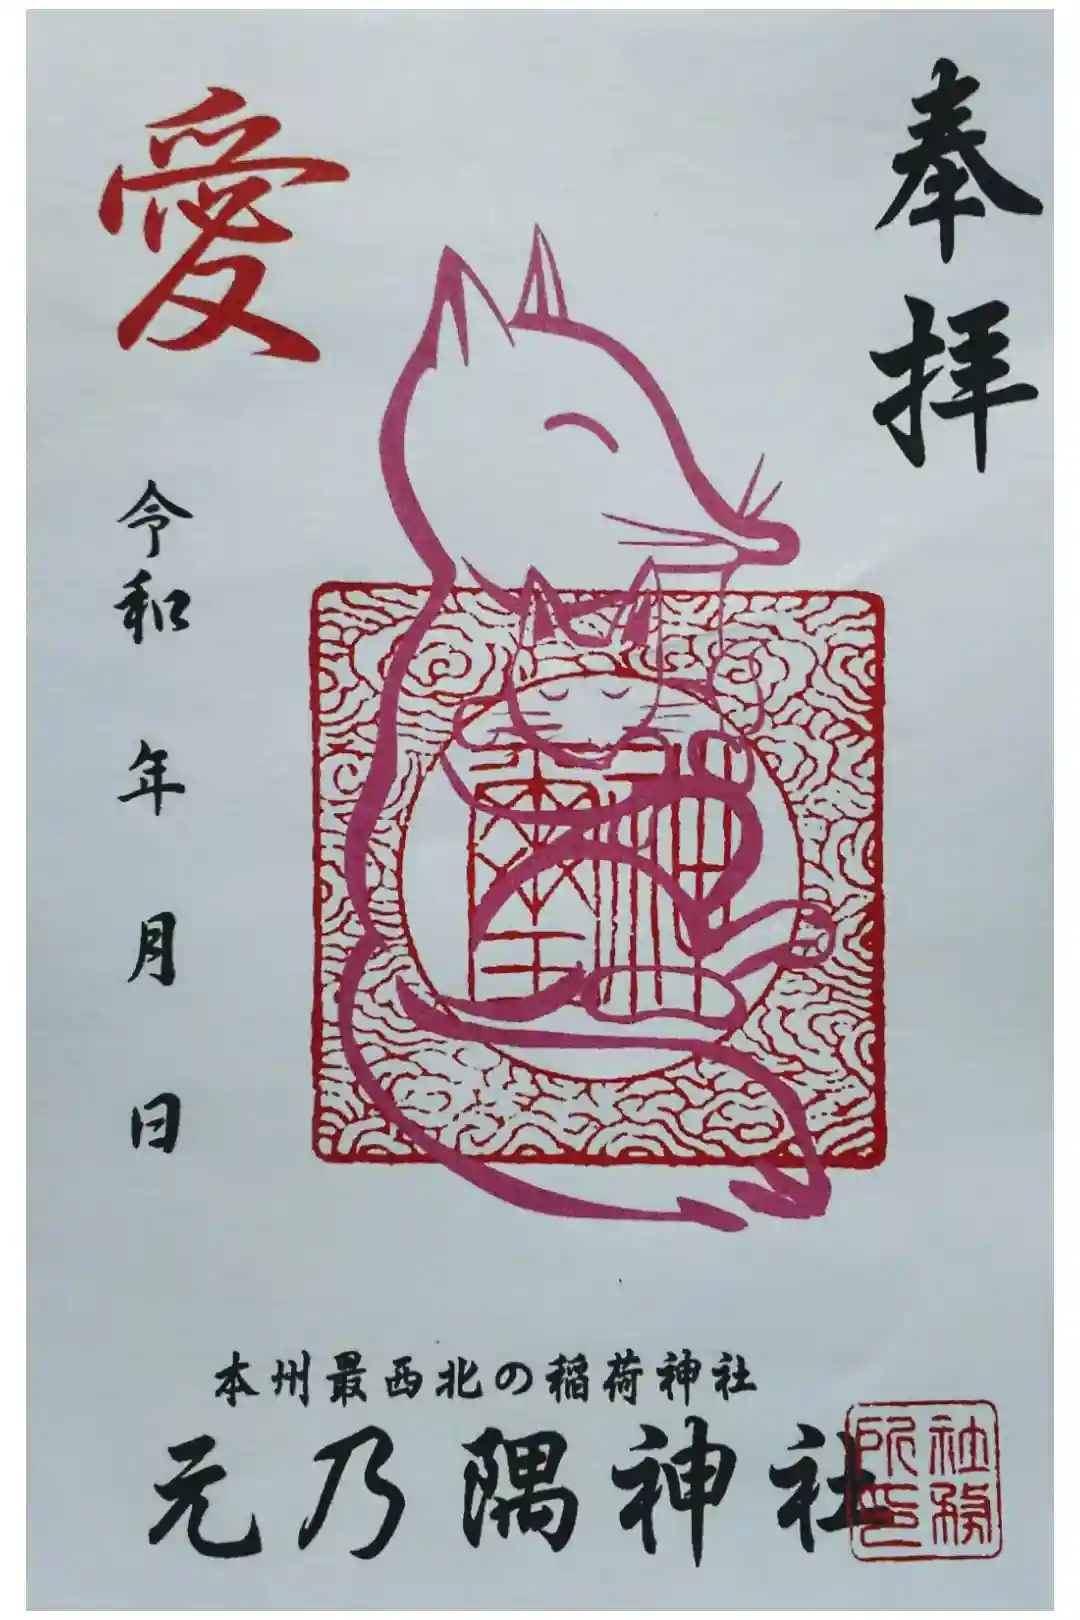 奉拝
愛
令和 年 月 日
本州最西北の稲荷神社
元乃隅神社
社務
所印